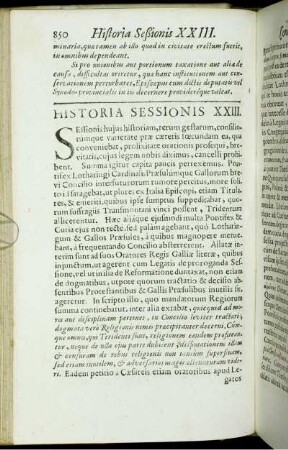 850 Historia Sessionis XXIII.
minaria, quæ tamen ab illo quod in civitate erectum fuerit,
in omnibus dependeant.
Si pro unionibus aut portionum taxatione aut alia de
causa, difficultas oriretur, qua hanc institutionem aut con-
servationem perturbaret, Episcopus cum dictis deputatis vel
Synodo provincialis in iis decernere providereque valeat.
HISTORIA SESSIONIS XXIII.
Sessionis hujus historiam, rerum gestarum, consilio-
rumque varietate præ cæteris fœcundam ea, qua
convenientibus, prolixitate orationis prosequi, bre-
vitatis, cujus legem nobis diximus, cancelli prohi-
bent. Summa igitur capita paucis perteremus. Pon-
tifex Lotharingi Cardinalis Præsulumque Gallorum bre-
vi Concilio interfuturorum rumore percitus, more soli-
to i.e. satagebat, ut plures ex Italia Episcopi etiam Titula-
res, & emeriti, quibus ipse sumptus suppeditabat, quo-
rum suffragiis Transmontani vinci possent, Tridentum
allicerentur. Hæc aliaque ejusmodi multa Pontifex &
Curia ejus non tectè, sed palam agebant, quo Lotharin-
gum & Gallos Præsules, à quibus magnopere metue-
bant, à frequentando Concilio absterrerent. Allatæ in-
terim sunt ad suos Oratores Regis Galliæ literæ, quibus
injunctum, ut agerent cum Legatis de proroganda Ses-
sione, vel ut in illa de Reformatione duntaxat, non etiam
de dogmatibus, utpote quorum tractatio & decisio ab-
sentibus Protestantibus & Gallis Præsulibus inutilis sit,
ageretur. In scripto illo, quo mandatorum Regiorum
summa continebatur, inter alia extabat, quicquid ad mo-
res aut disciplinam pertinet, in Concilio leviter tractari,
dogmata verò Religionis nimis præcipitanter decerni. Cùm-
que omnes, qui Tridenti sunt, religionem eandem profitean-
tur, neque de ullo ejus parte dubitent, disceptationem illam
& censuram de rebus religionis non tantùm superfluam,
sed etiam inutilem, & adversarios magis alienaturam vide-
ri. Eadem petitio à Cæsareis etiam oratoribus apud Le-
gatos